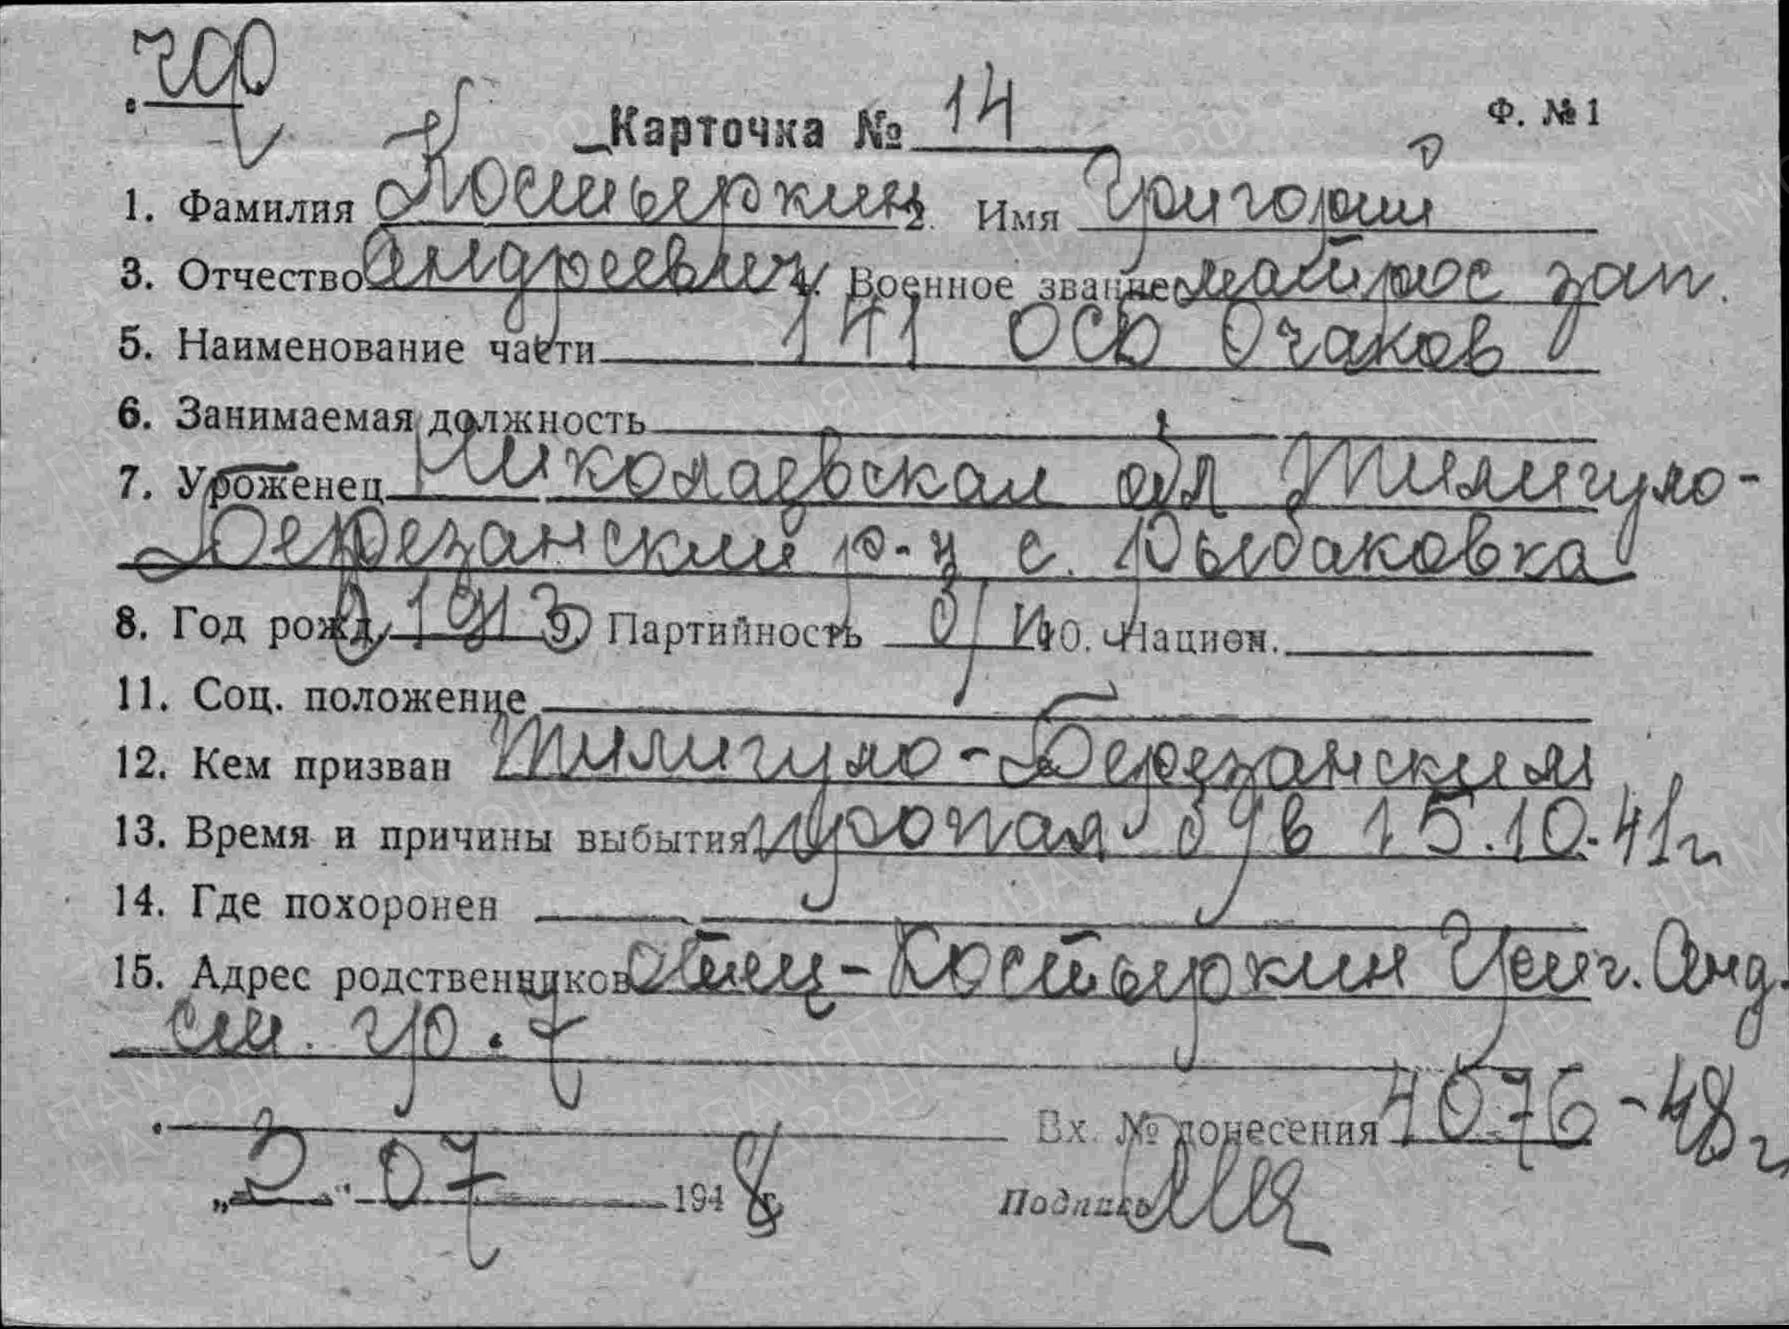 Карточка № 14 Ф. № 1
1. Фамилия Костыркин 2. Имя Григорий
3. Отчество Андреевич 4. Военное звание матрос зап.
5. Наименование части 141 ОСБ Очаков
6. Занимаемая должность
7. Уроженец Николаевская обл Тилигуло-
Березанский р-н с. Рыбаковка
8. Год рожд. 1913 9. Партийность б/п 10. Национ.
11. Соц. положение
12. Кем призван Тилигуло-Березанским
13. Время и причины выбытия пропал б/в 15.10.41г
14. Где похоронен
15. Адрес родственников отец - Костыркин Григ. Анд.
см. гр. 7
Вх. № донесения 4076-48г
„3" 07 1948 г. Подпись